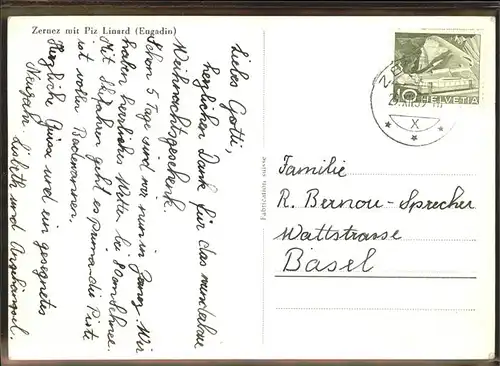 Zernez mit Piz Linard (Engadin)
Liebes Gotti,
herzlichen Dank für das wunderbare
Weihnachtsgeschenk.
Schon 5 Tage sind wir nun in Zernez. Wir
haben herrliches Wetter bei 80cm Schnee.
Mit Skifahren geht es prima - die Piste
ist voller Badewannen.
Herzliche Grüsse und ein gesegnetes
Neujahr. Lisbeth und Angehängsel.
Fabrication suisse
10 HELVETIA
X
Familie
R. Bernou-Sprecher
Wattstrasse
Basel